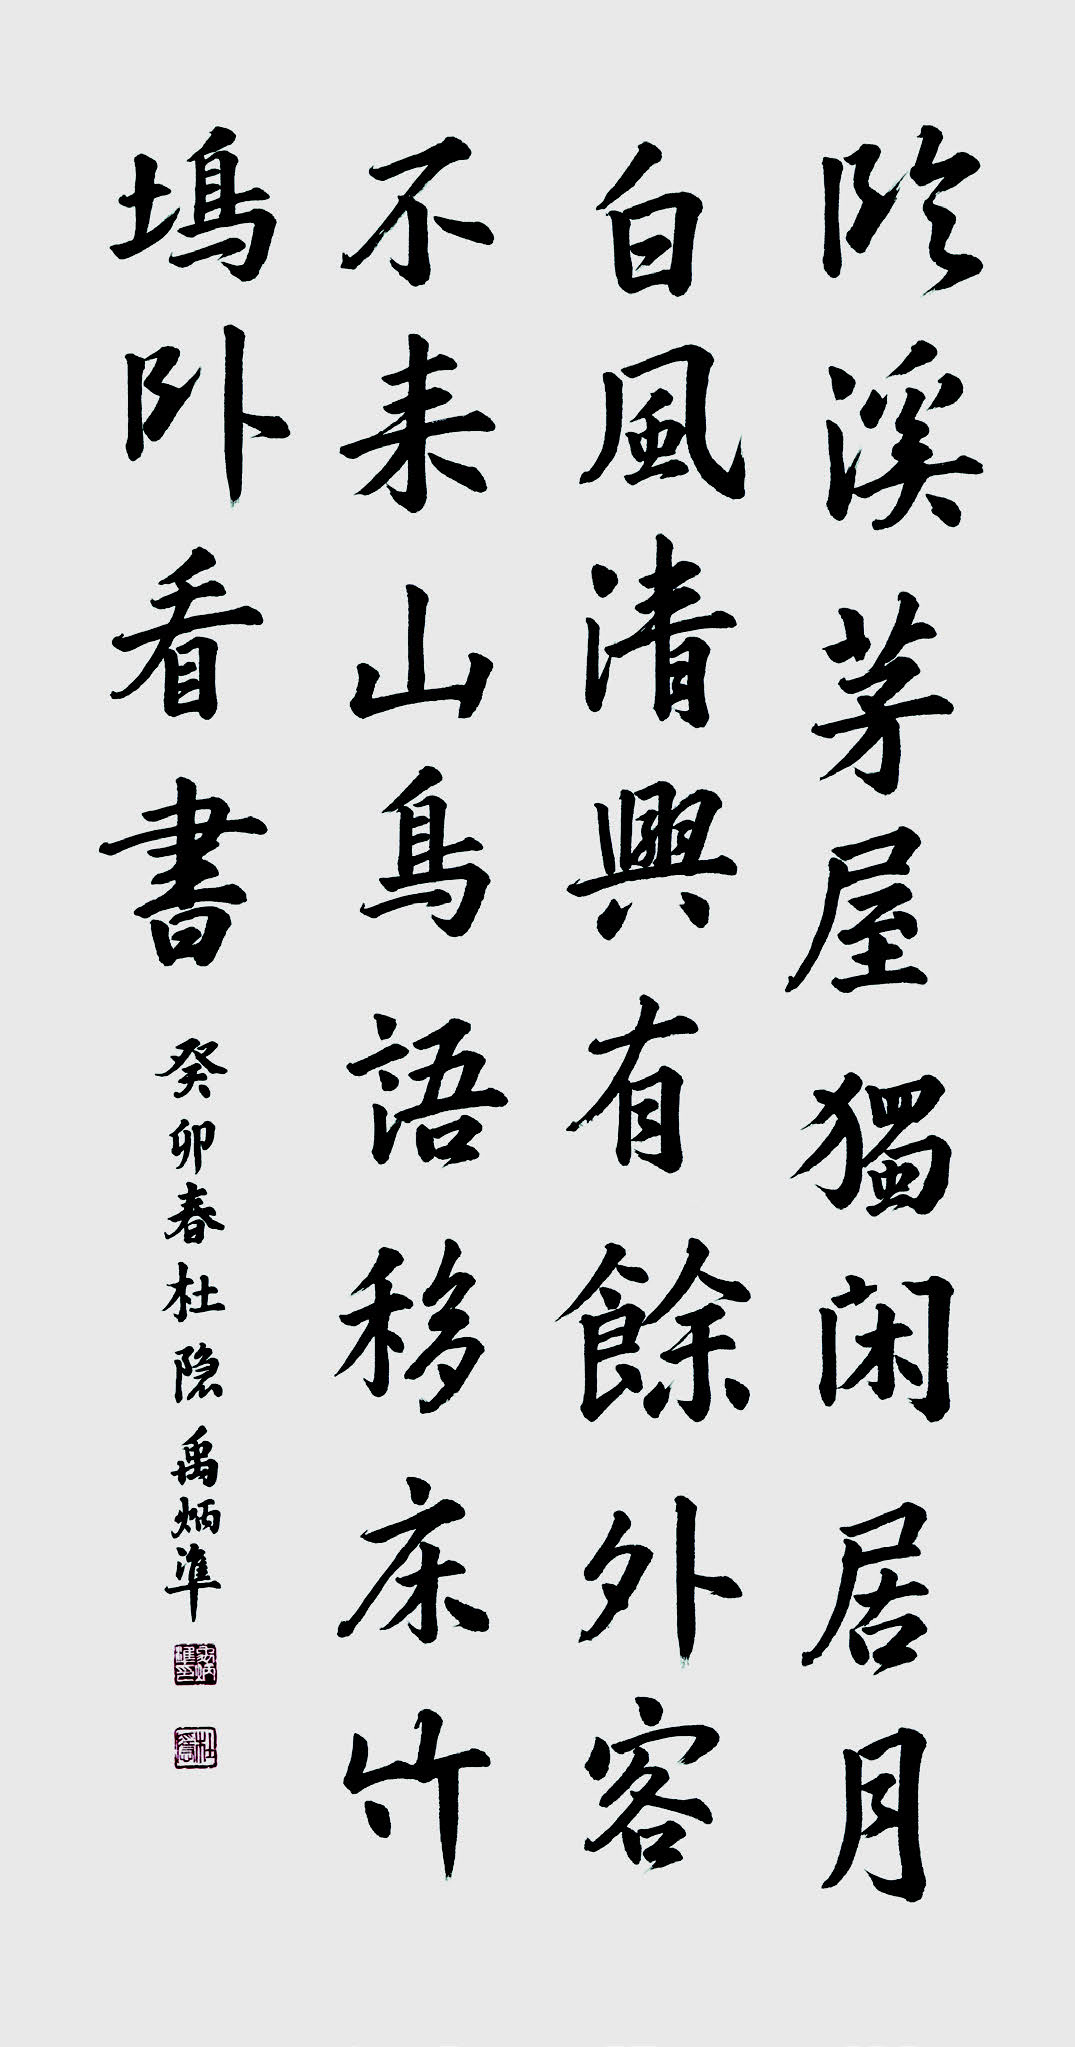 臨溪茅屋獨閑居月
白風清興有餘外客
不来山鳥語移床竹
塢卧看書
癸卯春杜隐禹炳準